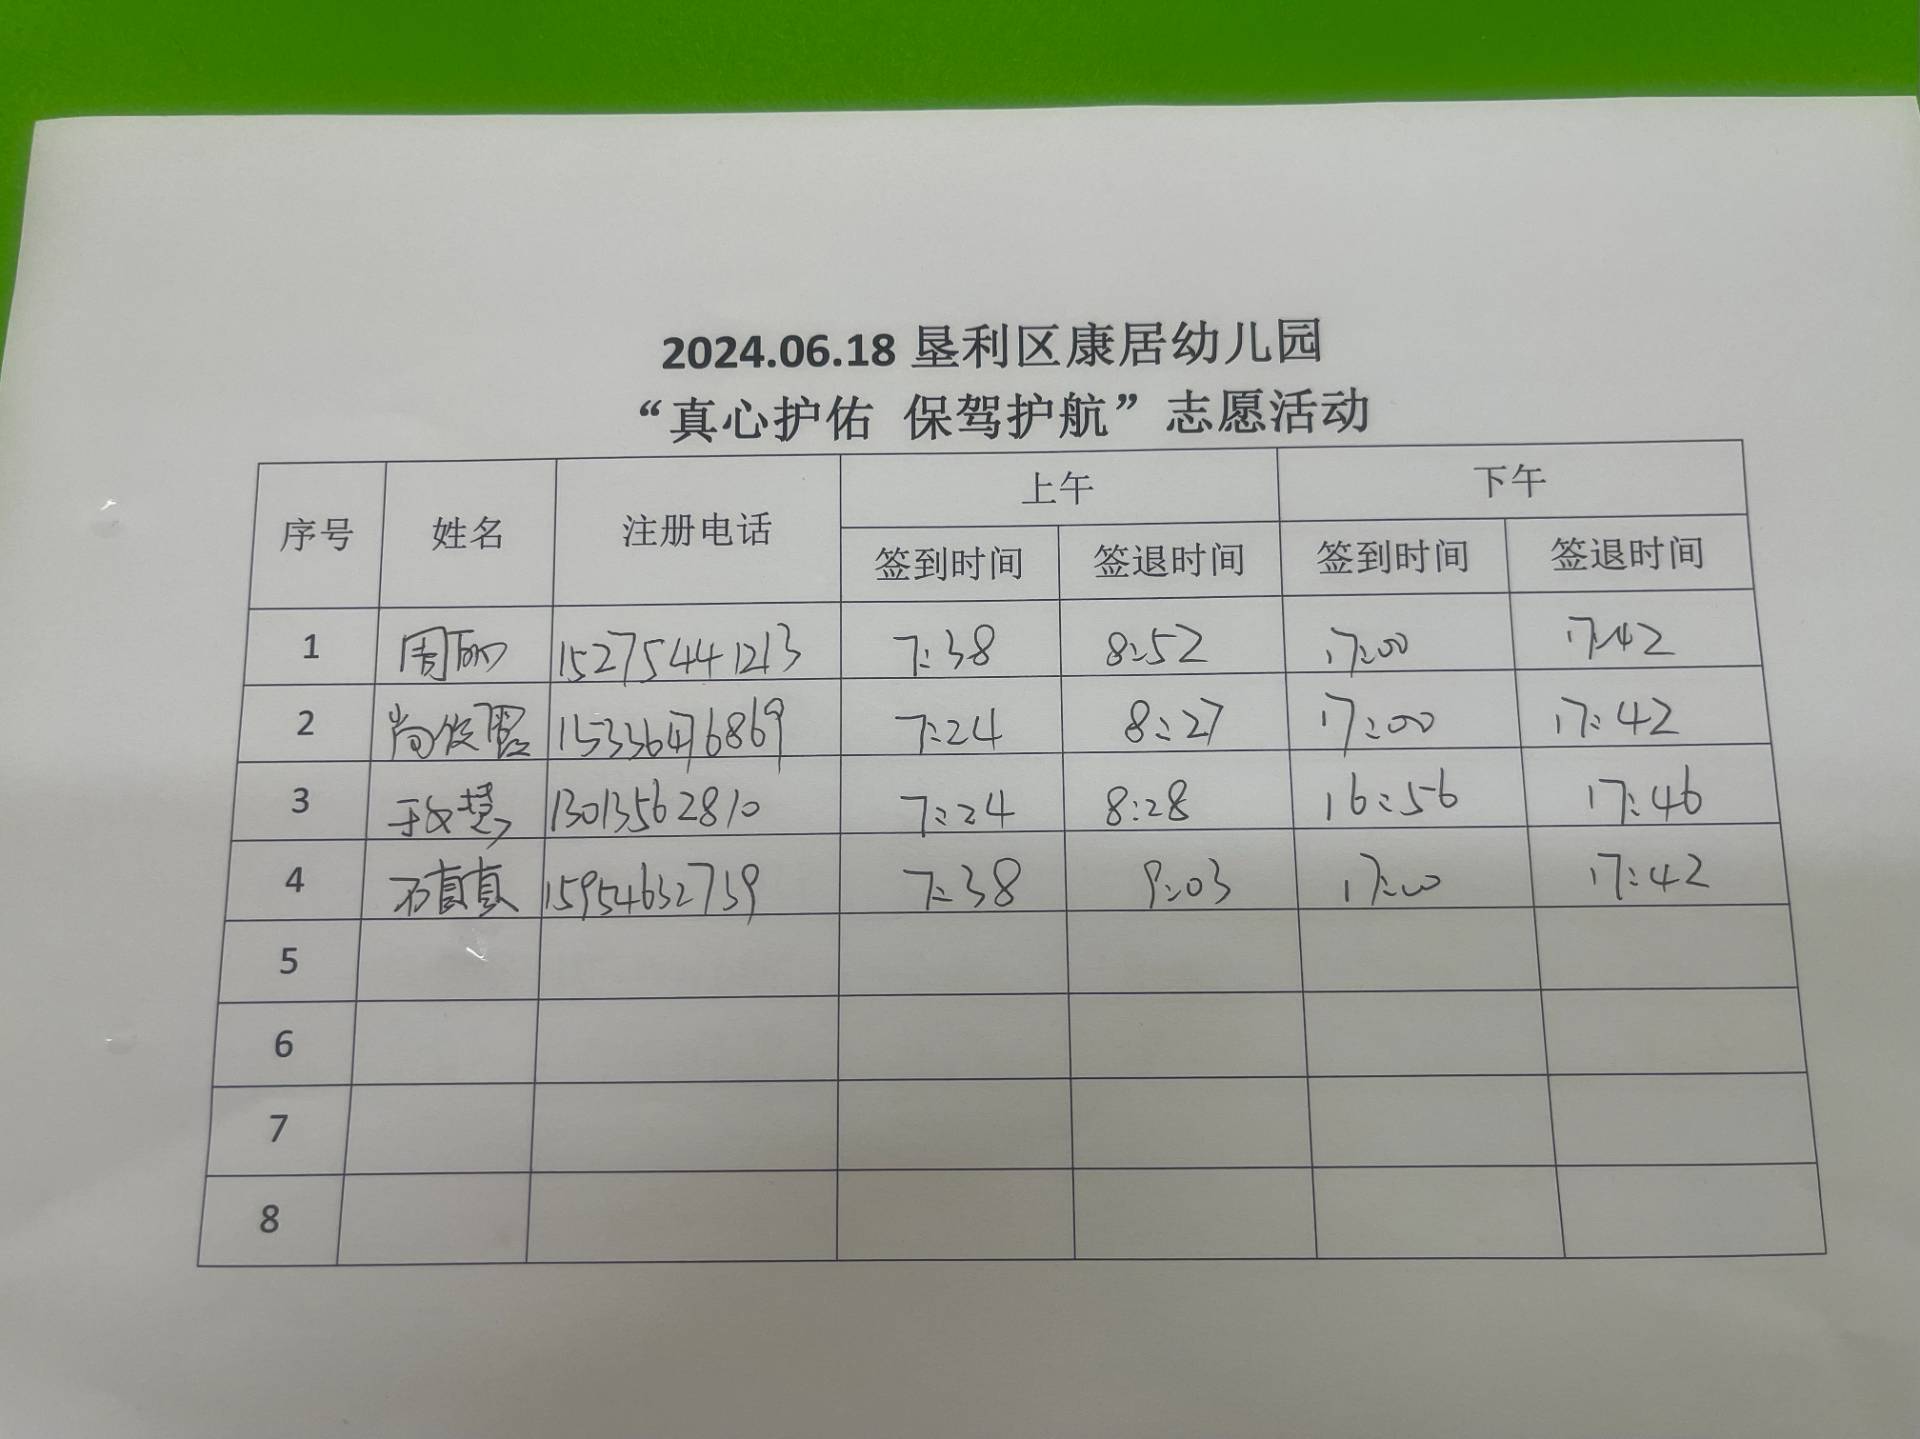 2024.06.18 垦利区康居幼儿园
“真心护佑 保驾护航”志愿活动
序号 姓名 注册电话 上午 下午
签到时间 签退时间 签到时间 签退时间
1 周丽 15275441213 7:38 8:52 17:00 17:42
2 尚俊霞 15336476869 7:24 8:27 17:00 17:42
3 13013562810 7:24 8:28 16:56 17:46
4 石真真 15954632759 7:38 9:03 17:00 17:42
5
6
7
8